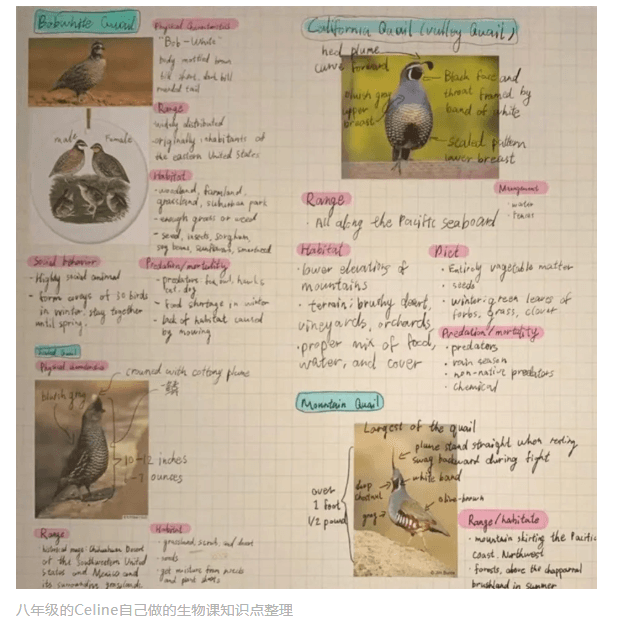 Bobwhite Quail
Physical Characteristics
"Bob-White"
body mottled brown
short, dark bill
rounded tail
male
Female
Range
widely distributed
originally: inhabitants of
the eastern United States
Habitat
- woodland, farmland,
grassland, suburban park
- enough grass or weed
- seed, insects, sorghum,
soy beans, sunflower,
Social behavior
- Highly social animal
- form coveys of 30 birds
in winter. stay together
until spring.
Predation/mortality
- predators: fox, owl, hawks
cat, dog
- Food shortage in winter
- lack of habitat caused
by mowing
Scaled Quail
Physical characteristics
crowned with cottony plume
bluish grey
10-12 inches
7 ounces
Range
historical range: Chihuahuan Desert
of the Southwestern United
States and Mexico and
its surrounding grasslands
Habitat
- grassland, scrub, and desert
- seeds
- get moisture from
and plant shoots
California Quail (Valley Quail)
head plume
curve forward
bluish grey
upper
breast
Black face and
throat framed by
band of white
scaled pattern
lower breast
Range
· All along the Pacific seaboard
- water
Habitat
· lower elevations of
mountains
· terrain: brushy desert,
vineyards, orchards,
· proper mix of food,
water, and cover
Diet
· Entirely vegetable matter
· seeds
· winter: green leaves of
forbs, grass, clover
Predation/mortality
· predators
· rain season
· non-native predators
· chemical
Mountain Quail
Largest of the quail
plume stand straight when resting
sway backward during flight
white band
chestnut
olive-brown
grey
over
1 foot
1/2 pound
Range/habitate
· mountain skirting the Pacific
coast, Northwest
· forests, above the chapparral
brushland in summer
八年级的Celine自己做的生物课知识点整理